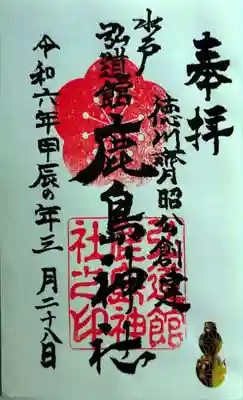 奉拝
徳川齊昭公創建
水戸
弘道館鹿島神社
令和六年甲辰の年三月二十八日
弘道館鹿島神社之印